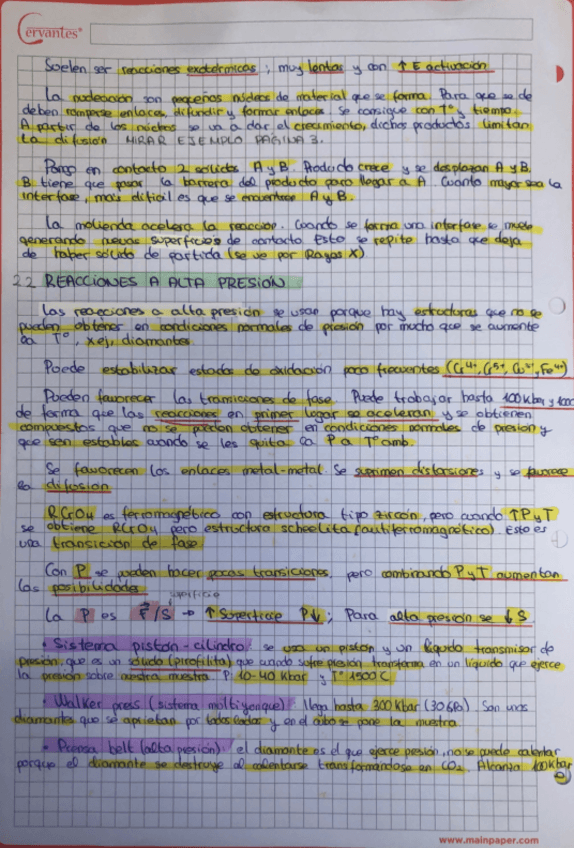 Cervantes
Suelen ser reacciones exotérmicas; muy lentas y con ↑ E activación
La nucleación son pequeños núcleos de material que se forma. Para que se de
deben romperse enlaces, difundir y formar enlaces. Se consigue con Tº y tiempo.
A partir de los núcleos se va a dar el crecimiento, dichos productos limitan
la difusión MIRAR EJEMPLO PÁGINA 3.
Pongo en contacto 2 sólidos A y B. Producto crece y se desplazan A y B.
B tiene que pasar la barrera del producto para llegar a A. Cuanto mayor sea la
interfase, más difícil es que se encuentre A y B.
La molienda acelera la reacción. Cuando se forma una interfase se muele
generando nuevas superficies de contacto. Esto se repite hasta que deja
de haber sólido de partida (se ve por Rayos X)
2.2 REACCIONES A ALTA PRESIÓN
Las reacciones a alta presión se usan porque hay estructuras que no se
pueden obtener en condiciones normales de presión por mucho que se aumente
la Tº, x ej, diamantes.
Puede estabilizar estados de oxidación poco frecuentes (Cr4+, Cr5+, Cu3+, Fe4+)
Pueden favorecer las transiciones de fase. Puede trabajar hasta 100 Kbar y
de forma que las reacciones en primer lugar se aceleran y se obtienen
compuestos que no se pueden obtener en condiciones normales de presión y
que son estables cuando se les quita la P a Tº amb.
Se favorecen los enlaces metal-metal. Se suprimen distorsiones y se favorece
la difusión
RCrO4 es ferromagnético con estructura tipo zircón, pero cuando ↑P y T
se obtiene RCrO4 pero estructura scheelita (antiferromagnético). Esto es
una transición de fase
Con P se pueden hacer pocas transiciones, pero combinando P y T aumentan
las posibilidades
superficie
La P es F/S → ↑ Superficie P↓; Para alta presión se ↓ S.
• Sistema pistón-cilindro: se usa un pistón y un líquido transmisor de
presión, que es un sólido (pirofilita) que cuando sufre presión transforma en un líquido que ejerce
la presión sobre nuestra muestra. P: 10-40 Kbar y Tº 1500 C
• Walker press (sistema multiyunque): llega hasta 300 Kbar (30 GPa). Son unos
diamantes que se aprietan por todos lados y en el cubo se pone la muestra
• Prensa belt (alta presión): el diamante es el que ejerce presión, no se puede calentar
porque el diamante se destruye al calentarse transformándose en CO2. Alcanza 100 Kbar
www.mainpaper.com